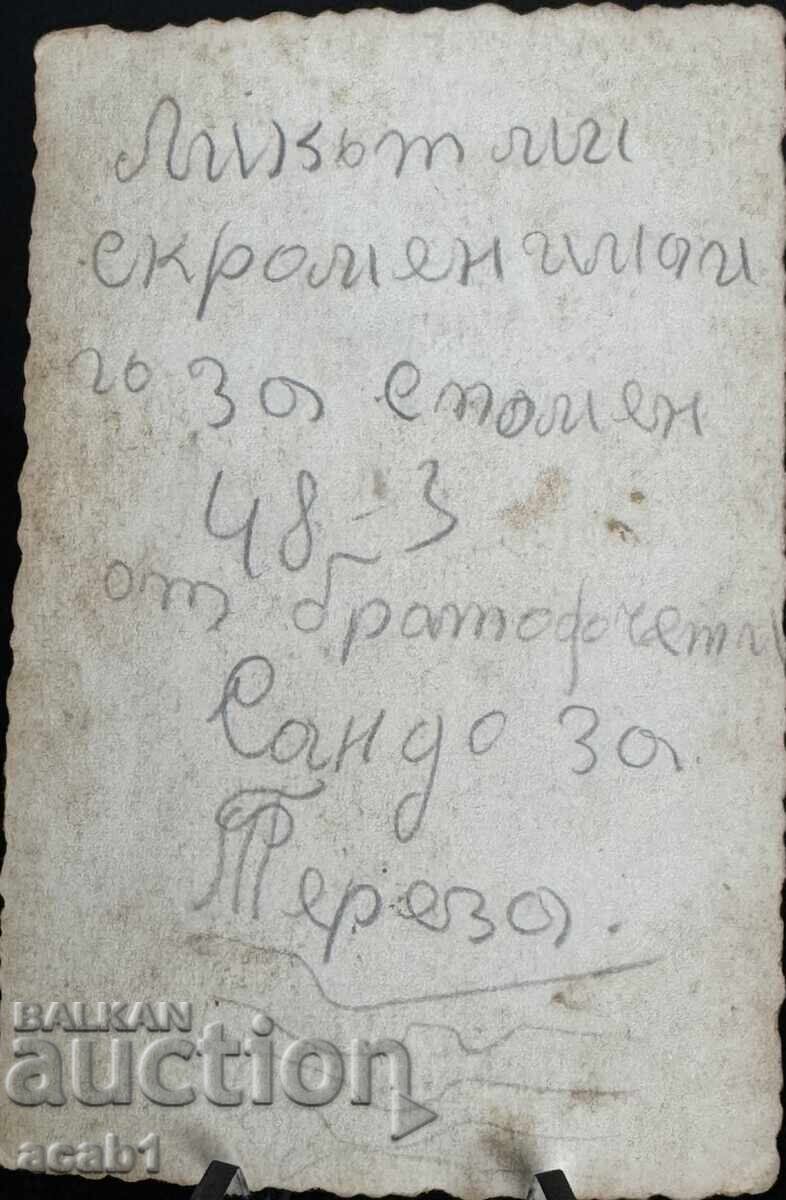 Ликът ми
скроменимай
го за спомен
48-3
от братофчетка
Сандо за
Тереза.
BALKAN
auction
acab1